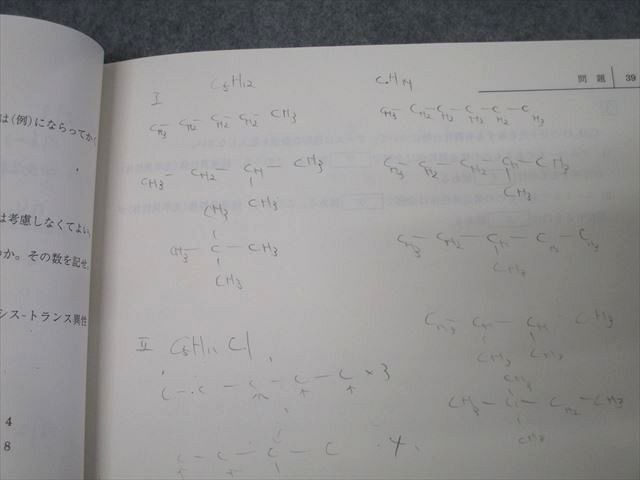 問題 39
は(例)にならってか
は考慮しなくてよい。
か。その数を記せ。
シス-トランス異性
4
8
I C5H12
CH3- CH2- CH2- CH2- CH3
CH3- CH2- CH - CH3
CH3
CH3
CH3- C - CH3
CH3
C6H14
CH3- CH2- CH2- CH2- CH2- CH3
CH3- CH2- CH2- CH - CH3
CH3
CH3- CH2- CH - CH2- CH3
CH3
CH3- CH - CH - CH3
CH3 CH3
CH3
CH3- C - CH2- CH3
CH3
II C5H11Cl
C - C - C - C - C ×3
C - C - C - C 4